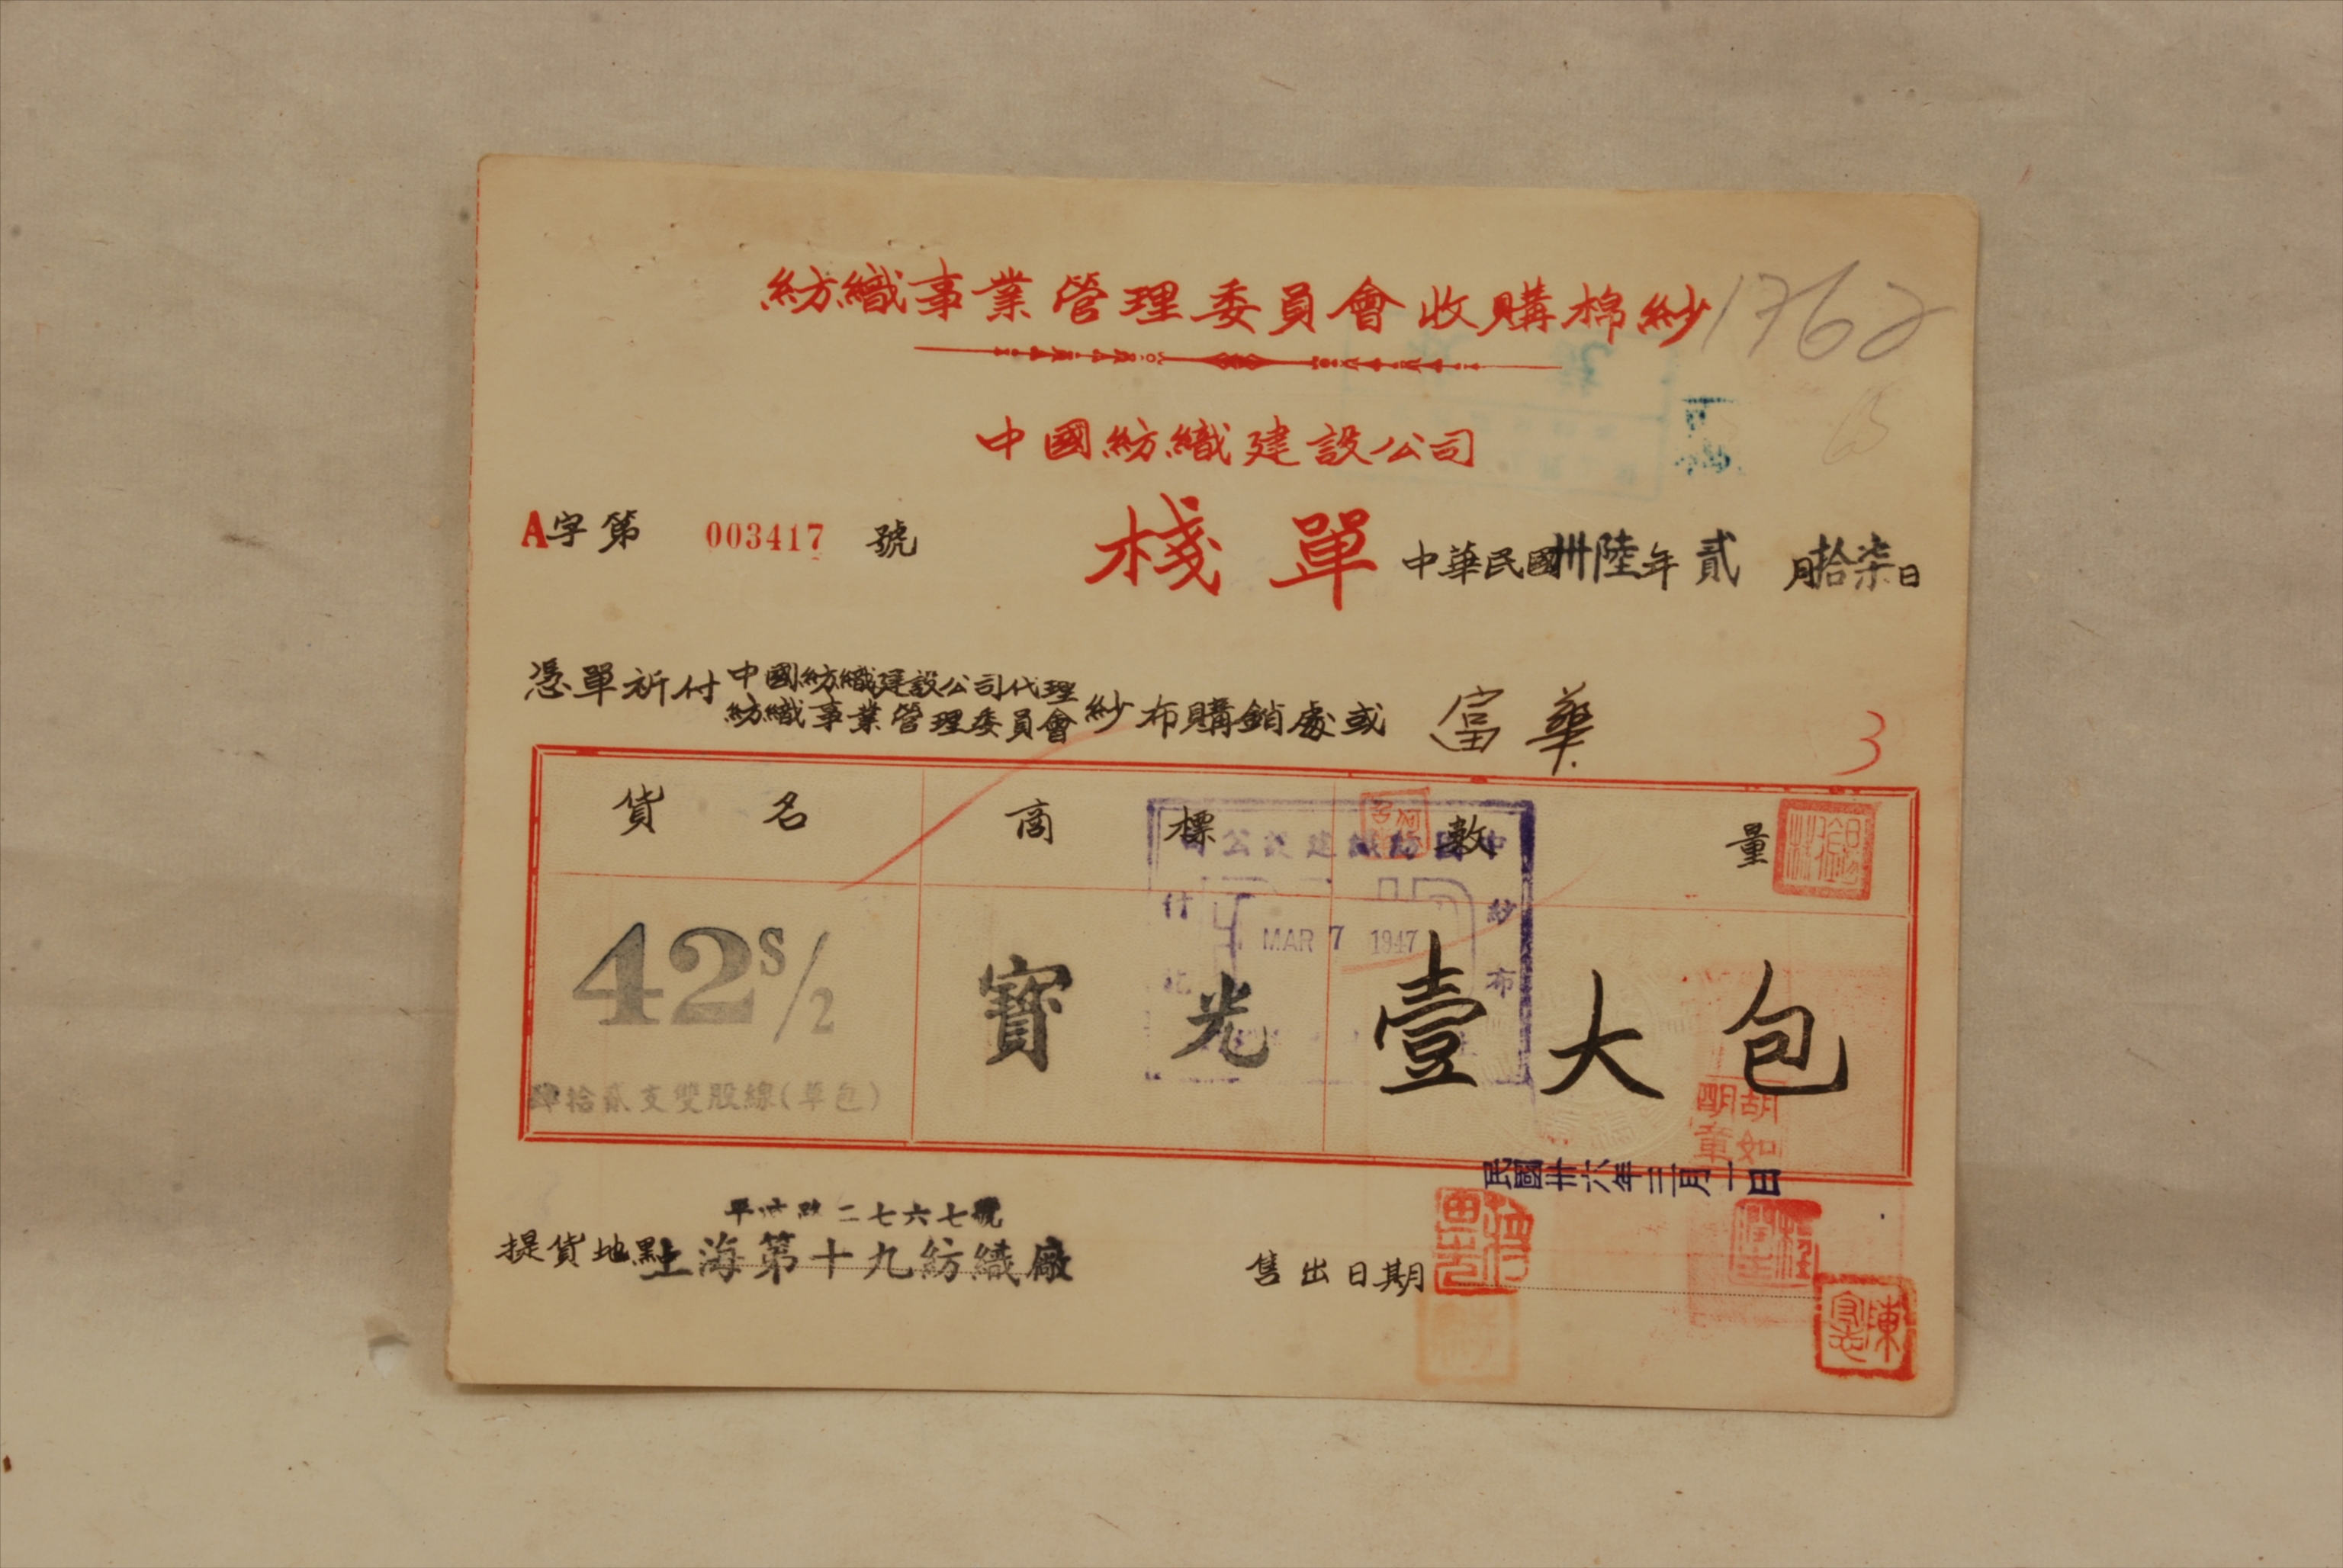 紡織事業管理委員會收購棉紗
1762
中國紡織建設公司
A字第 003417 號
棧單
中華民國卅陸年貳月拾柒日
憑單祈付
中國紡織建設公司代理
紡織事業管理委員會
紗布購銷處或 富華
3
貨名 商標 數量
中國紡織建設公司
紗布
付訖
MAR 7 1947
42s/2 寶光 壹大包
肆拾貳支雙股線(單包)
胡如明章
民國卅六年三月一日
二七六七號
提貨地點上海第十九紡織廠
售出日期